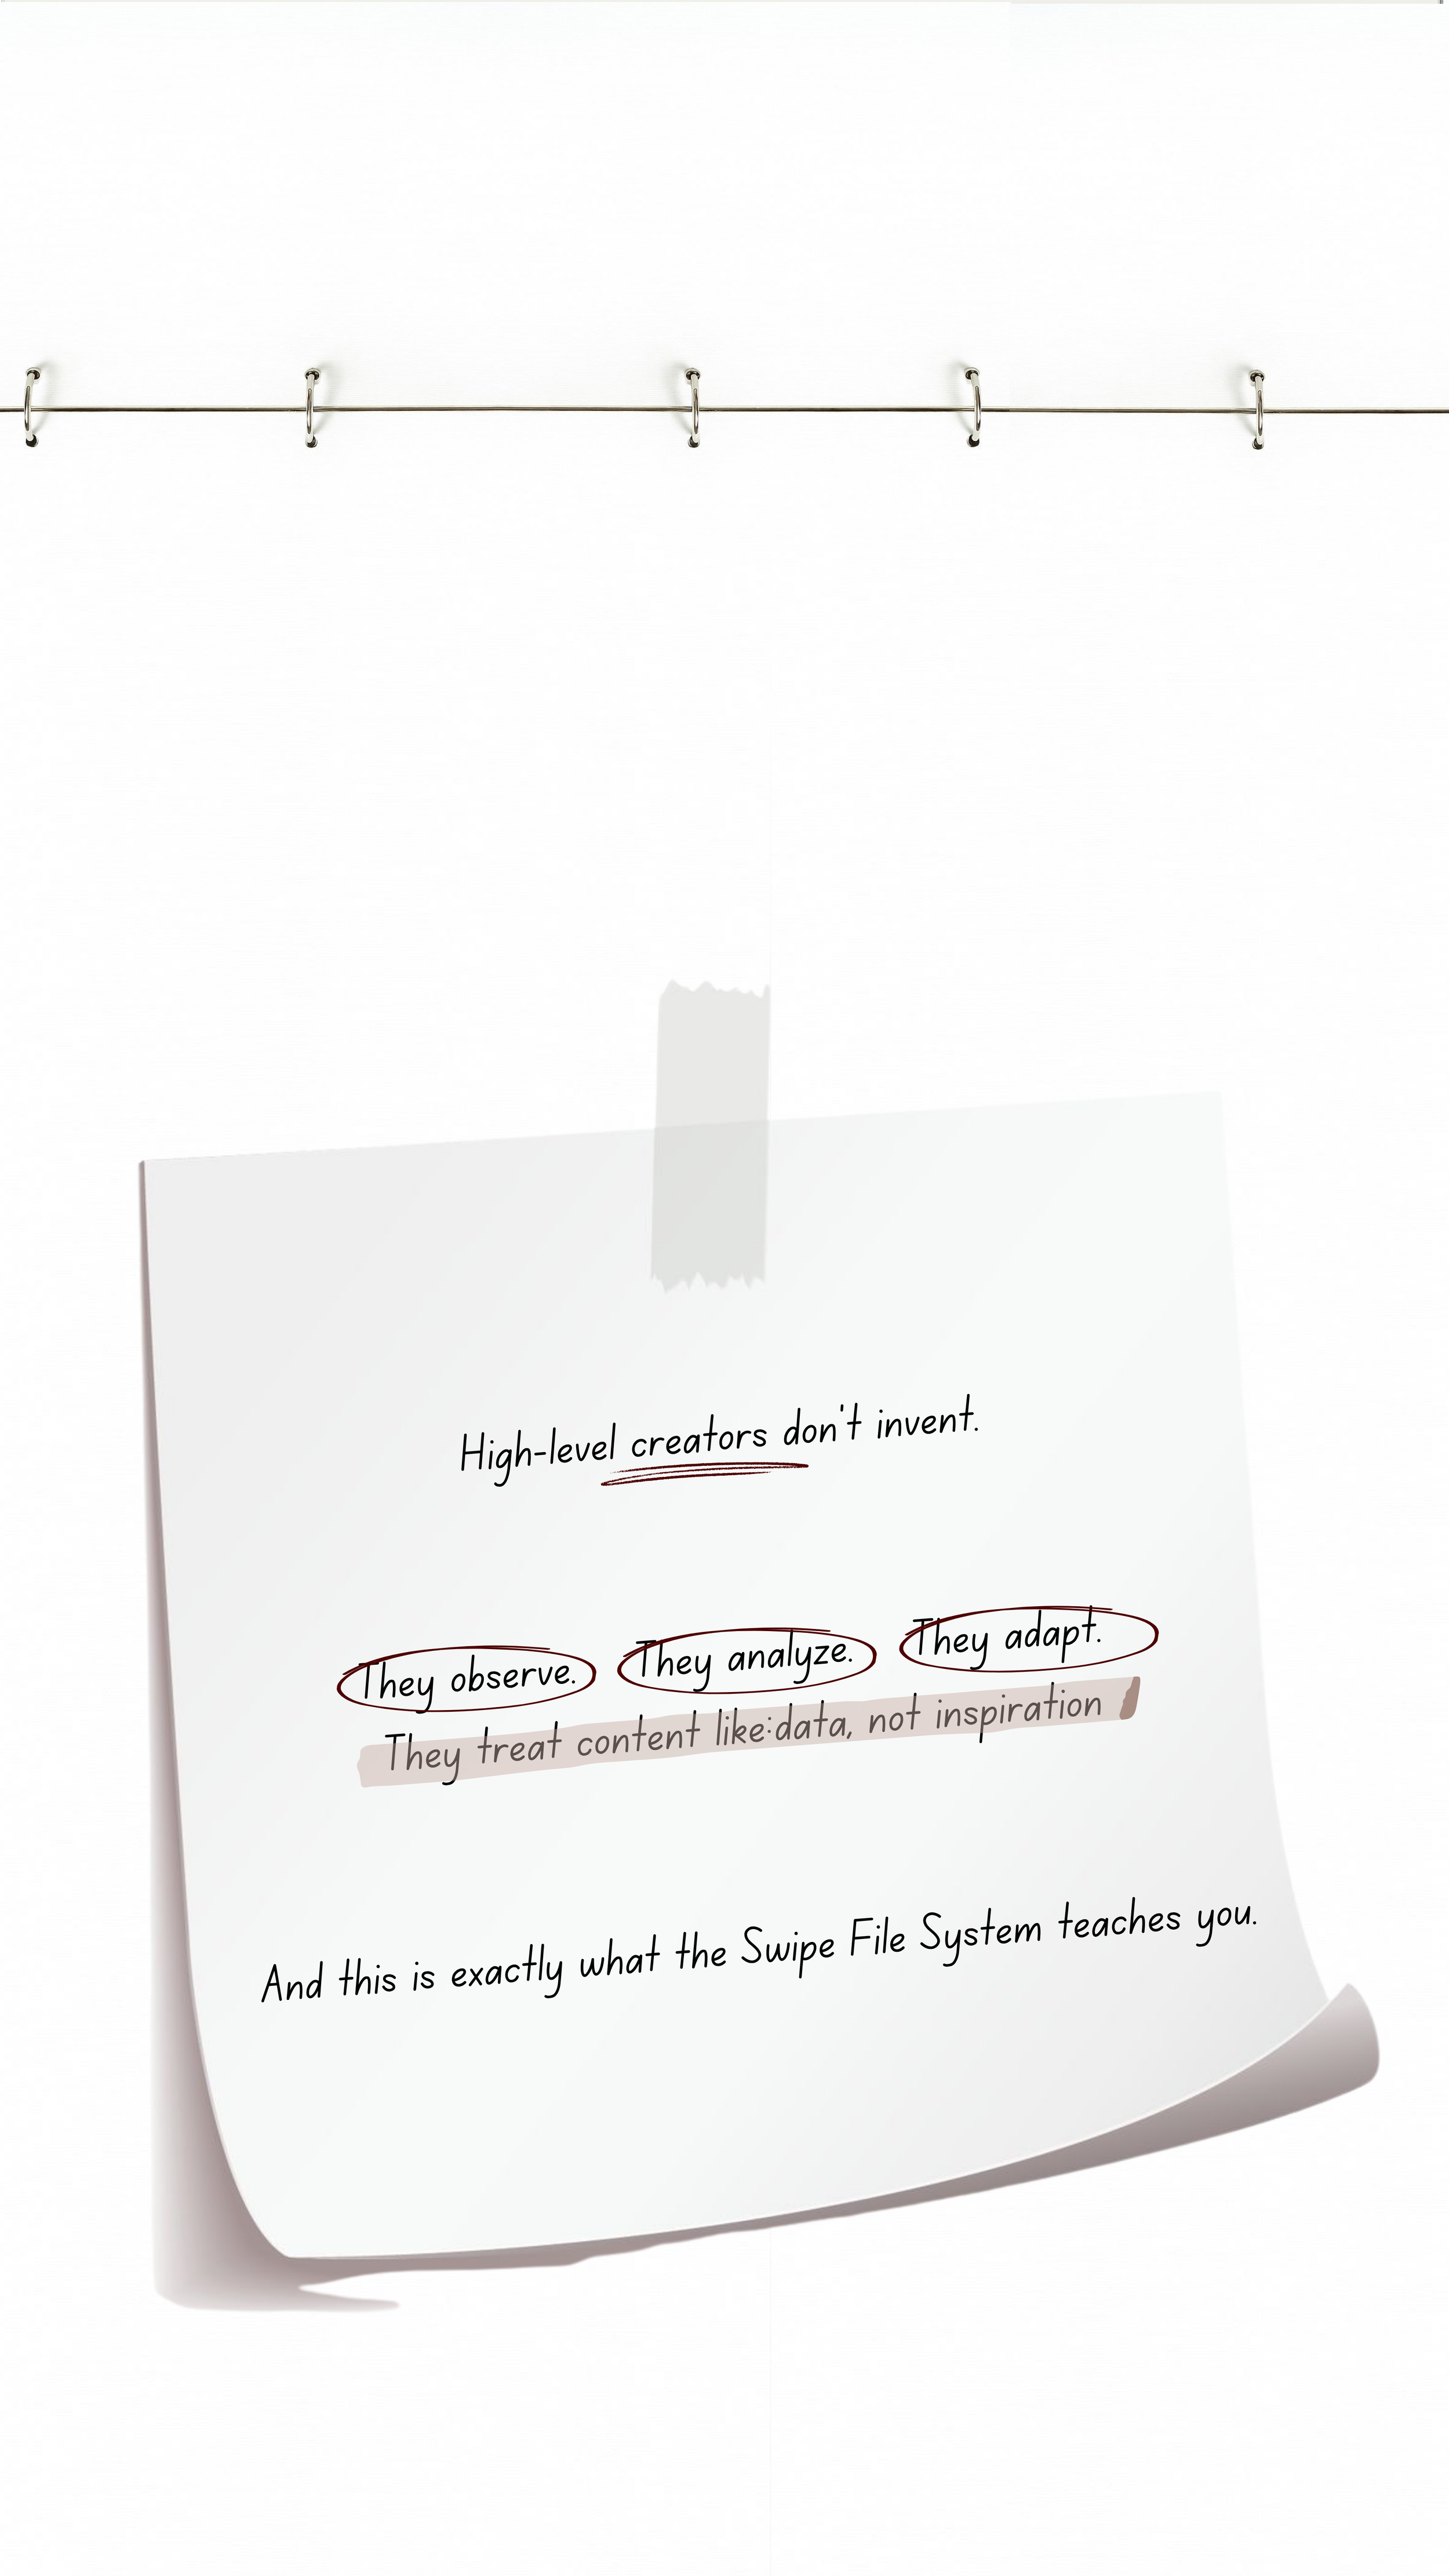 High-level creators don't invent.
They observe. They analyze. They adapt.
They treat content like:data, not inspiration
And this is exactly what the Swipe File System teaches you.